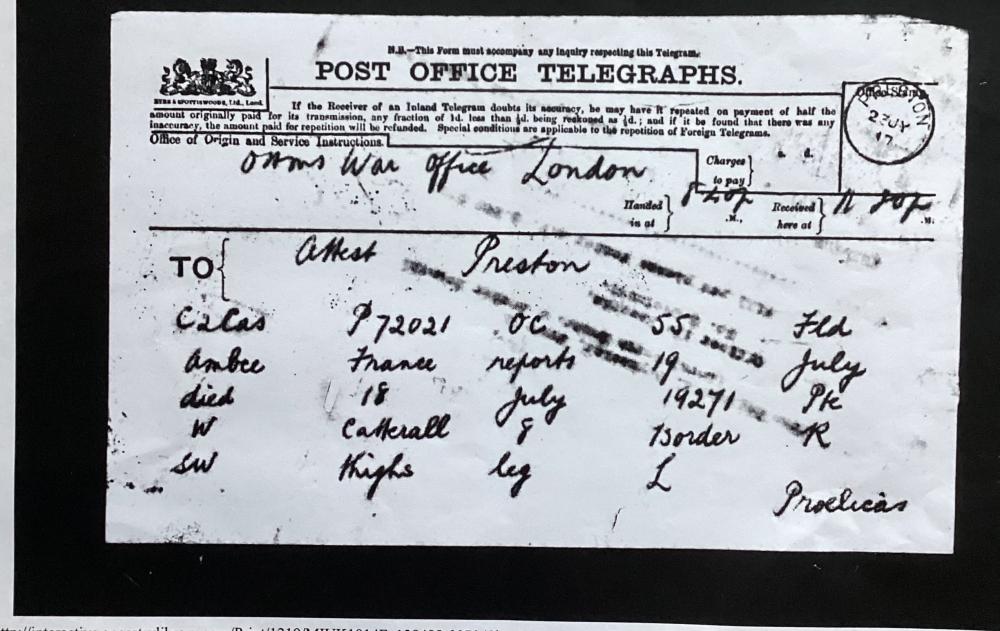 N.B.—This Form must accompany any inquiry respecting this Telegram.
POST OFFICE TELEGRAPHS.
If the Receiver of an Inland Telegram doubts its accuracy, he may have it repeated on payment of half the
amount originally paid for its transmission, any fraction of 1d. less than ½d. being reckoned as ½d.; and if it be found that there was any
inaccuracy, the amount paid for repetition will be refunded. Special conditions are applicable to the repetition of Foreign Telegrams.
Office of Origin and Service Instructions.
OHMS War Office London
Charges to pay
s. d.
PRESTON
17
Handed in at
.M.,
Received here at
.M.
TO
Attest Preston
C2Cas P72021 OC 55 Fld
Ambce France reports 19 July
died 18 July 19271 Pte
W Catterall 8 Border R
SW thighs leg L